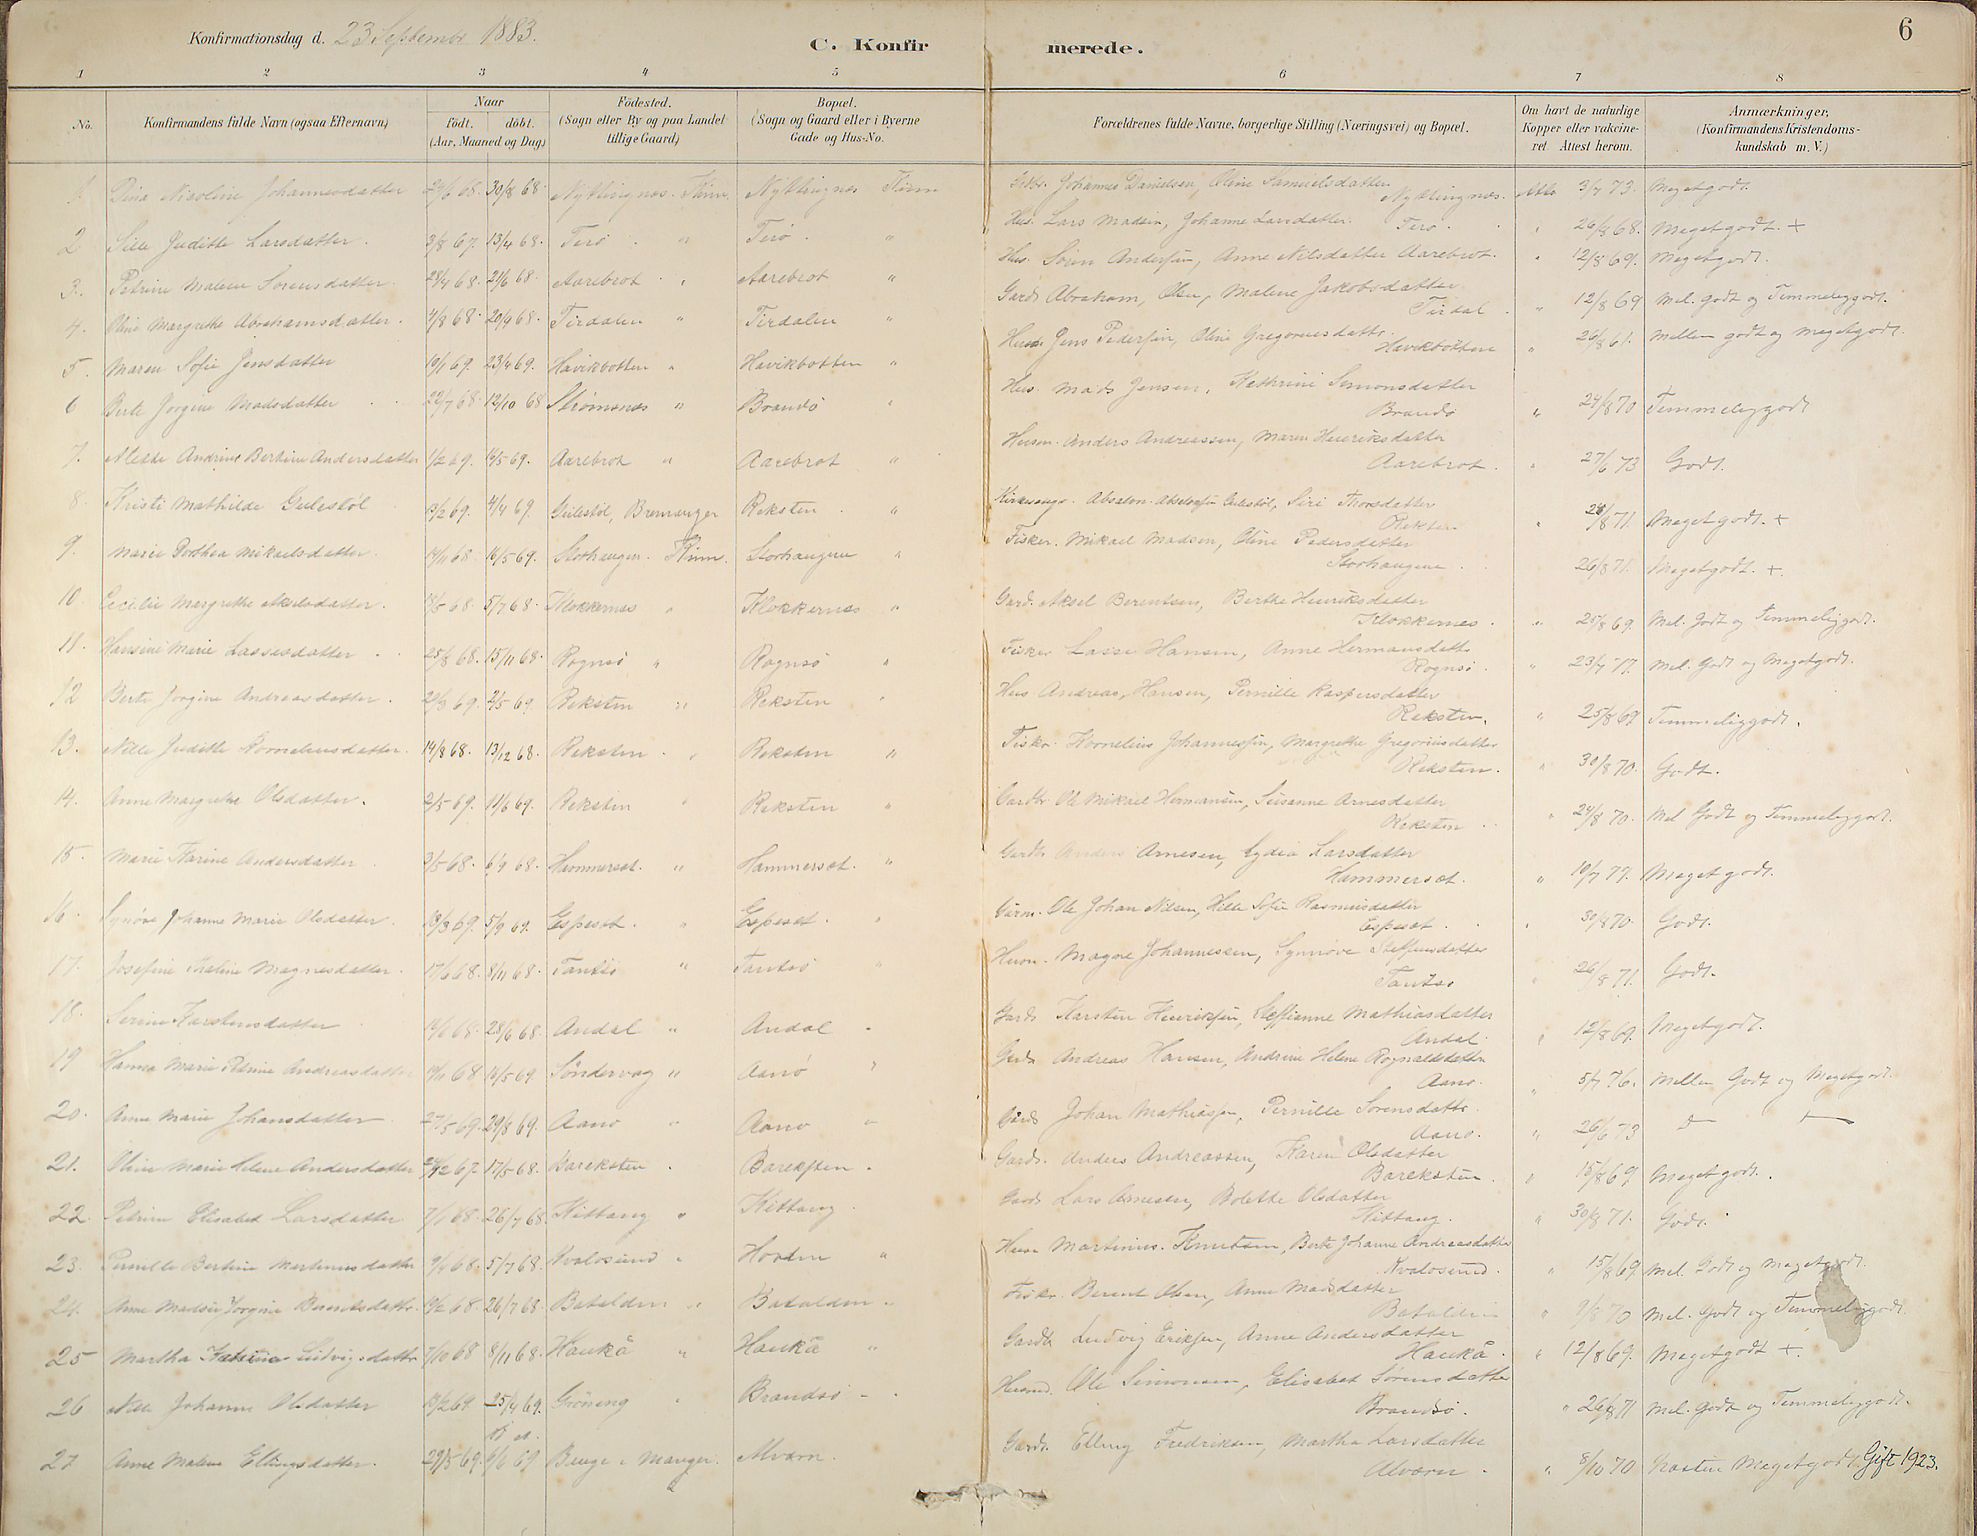 6
Konfirmationsdag d. 23 September 1883.
C. Konfirmerede.
1 2 3 4 5 6 7 8
No. Konfirmandens fulde Navn (ogsaa Efternavn) Naar født. døbt. (Aar, Maaned og Dag) Födested. (Sogn eller By og paa Landet tillige Gaard) Bopæl. (Sogn og Gaard eller i Byerne Gade og Hus-No. Forældrenes fulde Navne, borgerlige Stilling (Næringsvei) og Bopæl. Om havt de naturlige Kopper eller vakcineret Attest herom. Anmærkninger. (Konfirmandens Kristendomskundskab m. V.)
1. Dina Nicoline Johannesdatter 30/8 68. Nyttingnæs. Kinn. Nyttingnæs Kinn Johannes Danielsen, Oline Samuelsdatter Nyttingnæs. 3/7 73. Megetgodt.
2. Sille Juditte Larsdatter. 3/8 67. 13/4 68. Terö " Terö. " Hus. Lars Madsen, Johanne Larsdatter. Terö. " 26/8 68. Megetgodt. +
3. Petrine Malene Sorensdatter. 28/4 68. 21/6 68. Aarebrot " Aarebrot " Hus. Sören Andersen, Anne Nilsdatter Aarebrot. " 12/8 69. Megetgodt.
4. Oline Margrethe Abrahamsdatter. 4/8 68. 20/9 68. Tirdalen " Tirdalen " Gard. Abraham Olsen, Malene Jakobsdatter Tirdal. " 12/8 69 Mel. godt og Temmeliggodt.
5. Maren Sofie Jensdatter 10/1 69. 23/4 69. Havikbotten " Havikbotten " Jens Pedersen, Oline Gregoriusdattr. Havikbotten " 26/8 61. Mellem godt og Megetgodt.
6 Berte Jorgine Madsdatter 22/7 68. 12/10 68 Strömsnæs " Brandö " Hus. Mads Jensen, Kathrine Simonsdatter Brandö " 24/8 70 Temmeliggodt
7. Andrine Bertine Andersdatter 1/2 69. Aarebrot " Aarebrot " Husm. Anders Andreassen, Maren Henriksdatter Aarebrot. " 27/6 73 Godt.
8. Kristi Mathilde Geilestöl 13/2 69. 4/4 69. Geilestöl, Bremanger Reksten. " Kirkesanger. Absalon Geilestöl, Siri Thorsdatter Reksten " 28/8 71. Megetgodt. +
9. Marie Dorthea Mikaelsdatter. 14/11 68. 16/5 69. Storhaugen. Kinn. Storhaugene " Fisker. Mikael Madsen, Oline Pedersdatter Storhaugene. 26/8 71. Megetgodt. +.
10. Cecilie Margrethe Akselsdatter. 5/7 68. Klokkernes " Klokkernes " Gard. Aksel Berentsen, Berthe Henriksdatter Klokkernes. " 25/8 69. Mel. Godt og Temmeliggodt.
11. Hansine Marie Lassesdatter. 25/8 68. 15/11 68. Rognsö " Rognsö " Fisker Lasse Hansen, Anne Hermansdatt. Rognsö. " 23/7 77. Mel. Godt og Megetgodt.
12 Berte Jorgine Andreasdatter. 29/3 69. 2/5 69. Reksten " Reksten " Hus. Andreas Hansen, Pernille Kaspersdatter Reksten. " 25/8 69 Temmeliggodt.
13. Nille Juditte Kornelinsdatter. 14/8 68. 13/12 68. Reksten. " Reksten " Fisker. Kornelius Johannessen, Margrethe Gregoriusdatter Reksten. " 30/8 70. Godt.
14. Anne Margrethe Olsdatter. 2/5 69. 11/6 69. Reksten " Reksten " Gardbr. Ole Mikael Hermansen, Susanne Arnesdatter Reksten " 24/8 70. Mel Godt og Temmeliggodt.
15. Marie Karine Andersdatter 3/5 68. 6/9 68. Hammerset. " Hammerset. " Gardb. Anders Arnesen, Lydia Larsdatter Hammerset. " 10/7 77. Megetgodt.
16. Synöve Johanne Marie Olsdatter. 18/3 69. 5/9 69. Espeset. " Espeset. " Ole Johan Nilsen, Helle Sofie Rasmusdatter Espeset. " 30/8 70. Godt.
17. Josefine Maline Magnesdatter. 17/6 68. 8/11 68. Tantsö " Tantsö " Husm. Magne Johannessen, Synnöve Steffensdatter Tantsö " 26/8 71. Godt.
18. Serine Karstensdatter 28/6 68. Andal " Andal " Gardb. Karsten Henriksen, Steffianne Mathiasdatter Andal. " 12/8 69. Megetgodt.
19 Hanna Marie Andreasdatter 16/5 69. Söndervag " Aanö " Gardb. Andreas Hansen, Andrine Helene Rognaldsdatter Aanö. " 5/7 76. Mellem Godt og Megetgodt.
20. Anne Marie Johansdatter 27/5 69. 29/8 69. Aanö " Aanö " Gardb Johan Mathiassen, Pernille Sorensdattr. Aanö. " 26/6 73
21. Oline Marie Helene Andersdatter 67. 17/5 68. Bareksten. Bareksten. Gardb. Anders Andreassen, Karen Olsdatter Bareksten. " 15/8 69 Megetgodt.
22. Petrine Elisabet Larsdatter. 7/1 68. 26/7 68. Kittang " Kittang. Gardb Lars Arnesen, Bolette Olsdatter Kittang. " 30/8 71. Godt.
23. Pernille Bertine Martinusdatter 9/4 68. 5/7 68. Kvalosund " Hovden " Husm Martinus Knutsen, Berte Johanne Andreasdatter Kvalosund. " 15/8 69. Mel. Godt og Megetgodt.
24. Anne Madsie Jorgine Berentsdattr. 68. 26/7 68. Batalden " Batalden " Fisker. Berent Olsen, Anne Madsdatter Batalden " 9/8 70 Mel. Godt og Temmeliggodt.
25 Martha Ludvigsdattr 7/10 68 8/11 68. Haukå " Haukå " Gardb Ludvig Eriksen, Anne Andersdatter Haukå. " 12/8 69. Megetgodt +.
26 Nille Johanne Olsdatter 13/2 69. 25/4 69. Gröneng " Brandsö " Husmd. Ole Simonsen, Elisabet Sörensdatter Brandsö. " 26/8 71 Mel. Godt og Temmeliggodt.
27. Anne Malene Ellingsdatter. 29/3 69. 6/6 69 Manger. Alværn. Gardb. Elling Fredriksen, Martha Larsdatter Alværn. " 8/10 70 Næsten Megetgodt. Gift 1923.